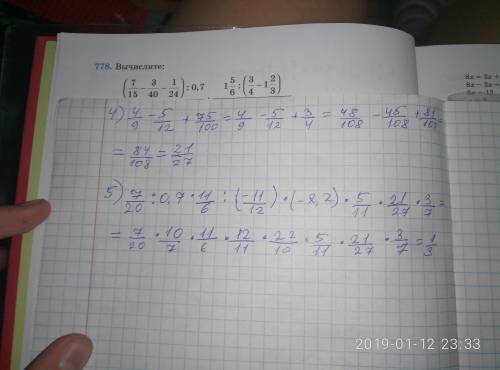 778. Вычислите:
(7/15 − 3/40 − 1/24) : 0,7    1 5/6 : (3/4 − 1 2/3)
8x = 2x +
8x − 2x =
4) 4/9 − 5/12 + 75/100 = 4/9 − 5/12 + 3/4 = 48/108 − 45/108 + 81/108 =
= 84/108 = 21/27
5) 7/20 : 0,7 · 11/6 : (−11/12) · (−2,2) · 5/11 · 21/27 · 3/7 =
= 7/20 · 10/7 · 11/6 · 12/11 · 22/10 · 5/11 · 21/27 · 3/7 = 1/3
2019-01-12 23:33